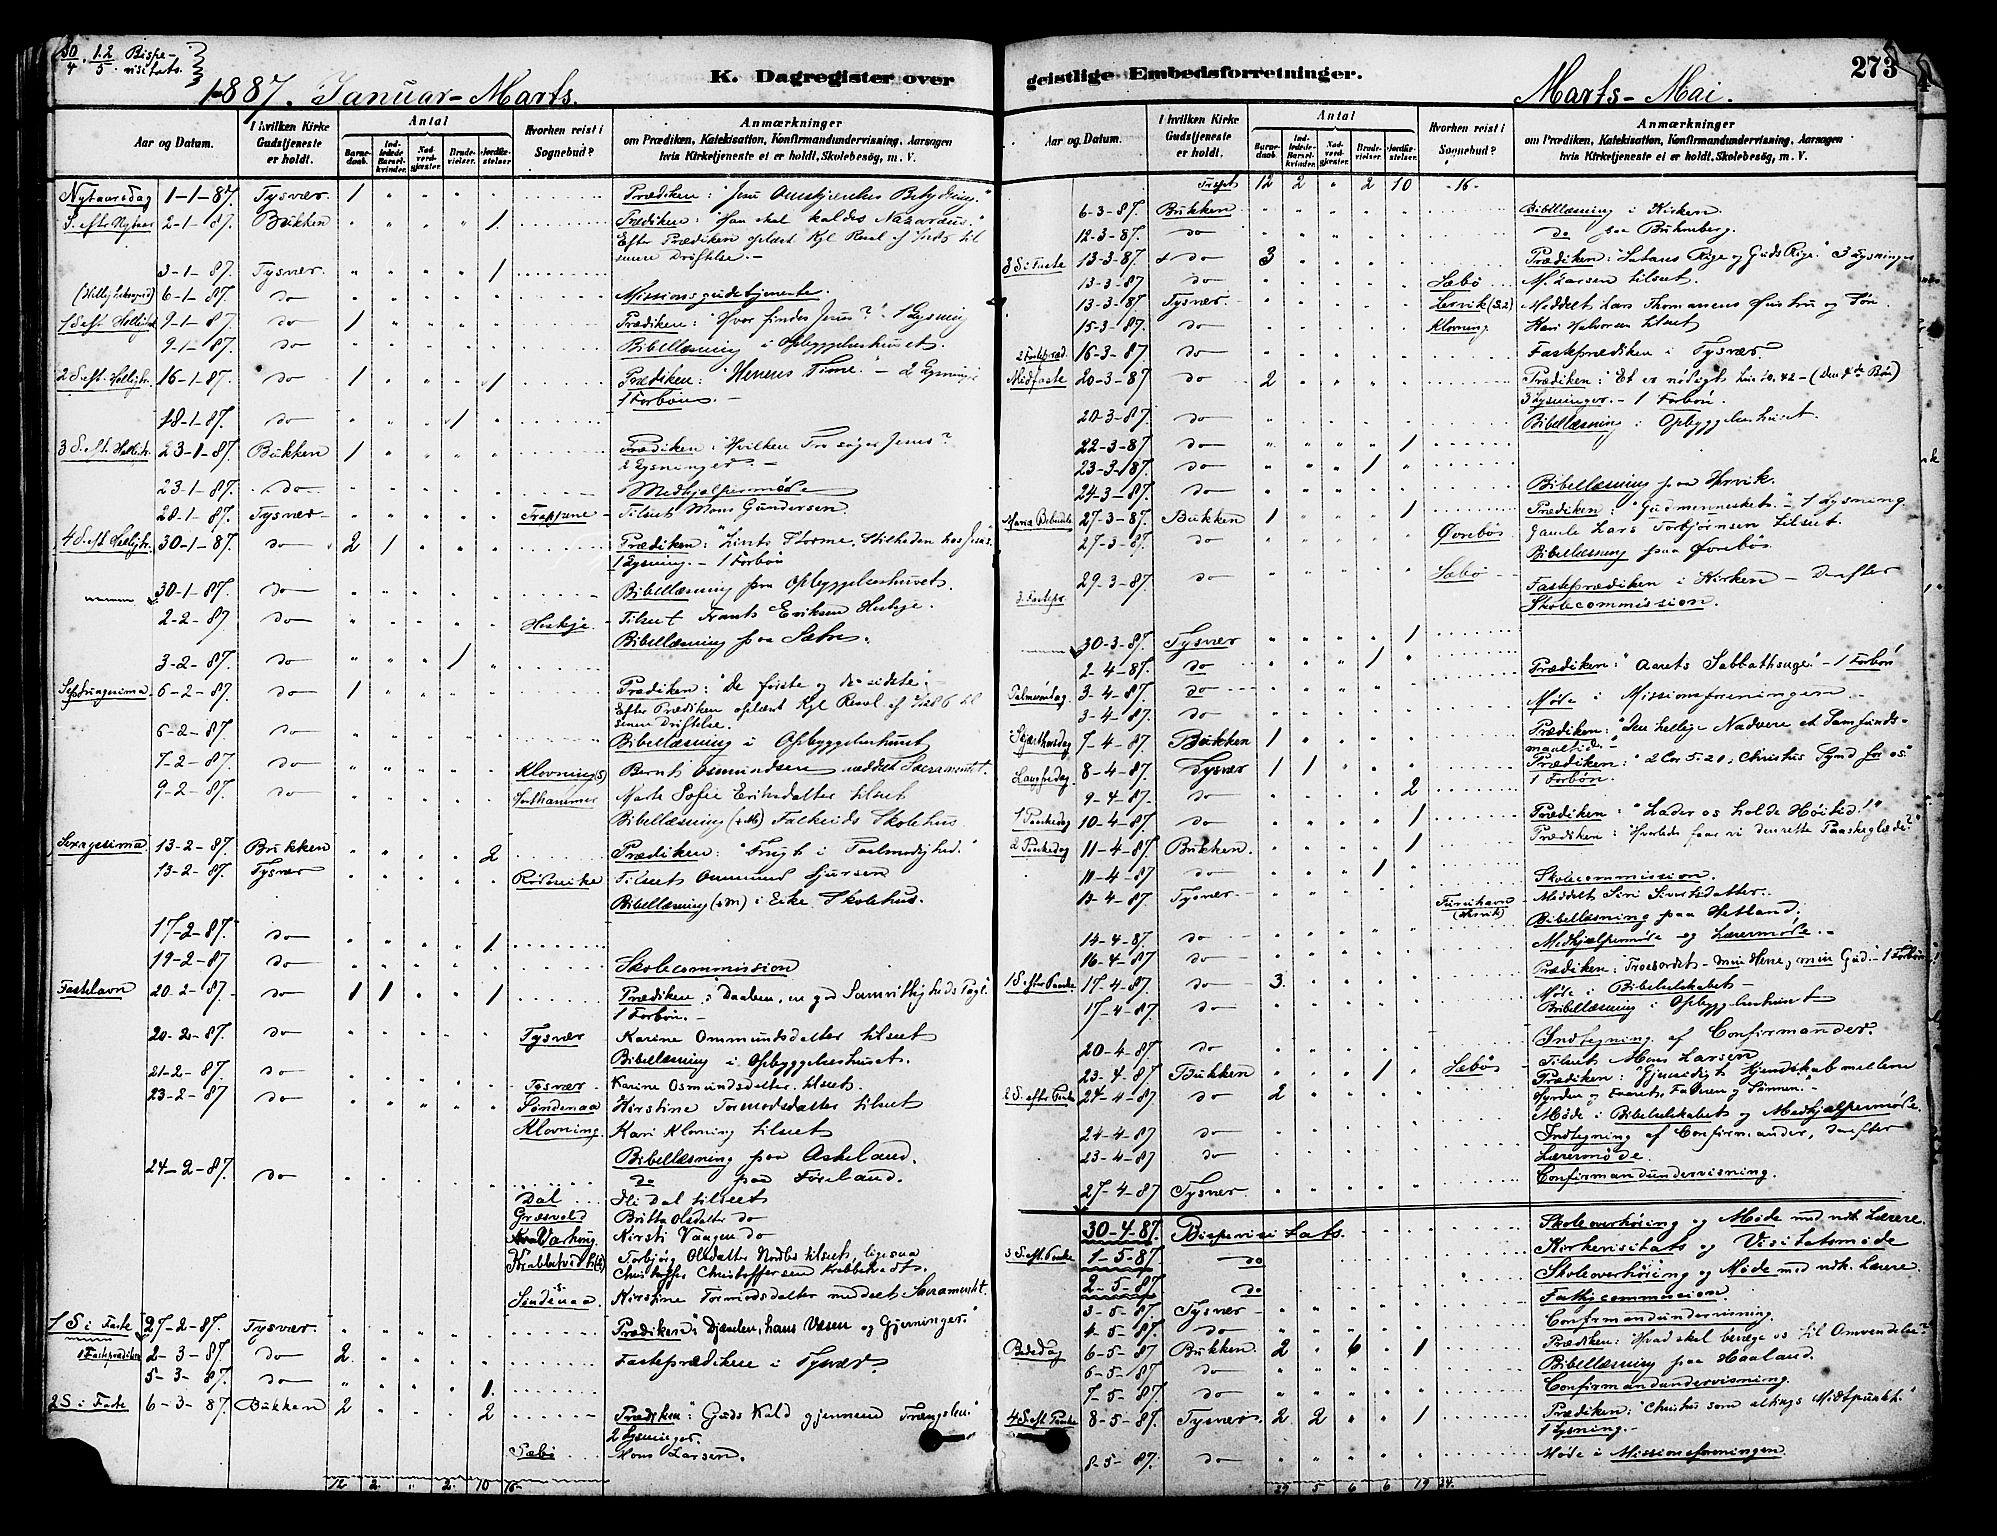 30/4. 1.2/5 Bispe-
visitats.
1887. Januar - Marts.
K. Dagregister over
Aar og Datum.
I hvilken Kirke
Gudstjeneste
er holdt.
Antal
Barne-
daab.
Ind-
ledede
Barsel-
kvinder.
Nad-
verd-
gjester.
Brude-
vielser.
Jordfæ-
stelser.
Hvorhen reist i
Sognebud?
Anmærkninger
om Prædiken, Katekisation, Konfirmandundervisning, Aarsagen
hvis Kirketjeneste ei er holdt, Skolebesög, m. V.
Nytaarsdag 1-1-87. Tysvær. 1 " " " " Prædiken: "Jesu Omskjærelses Betydning."
S. eft. Nytaar 2-1-87. Bukken " " " " 1. Prædiken: "Han skal kaldes Nazaræus."
Efter Prædiken oplæst Kgl Resol af
senere Driftelse. -
3-1-87. Tysvær. " " " " 1
6-1-87. do Missionsgudstjeneste.
1 S. eft. Hellig 9-1-87. do 1 Prædiken: "Hvor findes Jesus?" 1 Lysning
9-1-87. do Bibellæsning i Opbyggelseshuset.
2 S. eft. Helligtr. 16-1-87. do 1 1 Prædiken: "Herrens Time." - 2 Lysninger
1 Forbøn. -
18-1-87. do 1
3 S. eft. Helligtr. 23-1-87. Bukken 1 Prædiken: "Hvilken Tro søger Jesus?
2 Lysninger. -
23-1-87. do Medhjælpermøde
20-1-87. Tysvær Tilset Mons Gundersen
4 S. eft. Helligtr. 30-1-87. do 2 1 Prædiken: "Livets Storme, Stilheden hos Jesus.
1 Lysning. - 1 Forbøn
30-1-87. do Bibellæsning paa Opbyggelseshuset.
2-2-87 do Heskje Tilset Frants Eriksen Heskje.
Bibellæsning paa Sætre.
3-2-87. do 1
Septuagesima 6-2-87. do 1 Prædiken: "De første og de sidste. -
Efter Prædiken oplæst Kgl Resol af
senere Driftelse.
6-2-87. do Bibellæsning i Opbyggelseshuset
7-2-87. do Klovning (S) Bernt Osmundsen meddelt Sacramentet.
9-2-87. do Marte Sofie Eriksdatter tilset
Bibellæsning (+M) Falkeids Skolehus
Sexagesima. 13-2-87. Bukken 2 Prædiken: "Frugt i Taalmodighed."
13-2-87. Tysvær Tilset Ommund Sjursen
Bibellæsning (+M) i Eike Skolehus.
17-2-87. do 1.
19-2-87 do Skolecommission
Fastelavn 20-2-87. do 1 1 1 Prædiken: "Daaben, en god Samvittigheds Pagt.
1 Forbøn. -
20-2-87. do Tysvær Karine Ommundsdatter tilset
Bibellæsning i Opbyggelseshuset.
21-2-87. do Tysvær Karine Osmundsdatter tilset.
23-2-87 do Søndenaa Kirstine Tormodsdatter tilset
Klovning. Kari Klovning tilset
24-2-87. do Bibellæsning paa Askeland.
do paa Føreland.
Dal Dal tilset
Græsvold Britta Olsdatter do
Varhug Kirsti Vaagen do
Torbjørg Olsdatter tilset, ligesaa
Christoffer Christoffersen
Søndenaa. Kirstine Tormodsdatter meddelt Sacramentet.
1 S. i Faste 27-2-87. Tysvær. Prædiken: "Djævelen, hans Væsen og Gjerninger."
1 Fasteprædiken 2-3-87. do 2 Fasteprædiken i Tysvær
5-3-87. do 1.
2 S. i Faste 6-3-87. Bukken 2 2 Prædiken: "Guds Kald gjennem Trængslen"
2 Lysninger.
Sæbø Mons Larsen.
12 2 " 2 10 16
geistlige Embedsforretninger.
273
Marts - Mai.
Aar og Datum.
I hvilken Kirke
Gudstjeneste
er holdt.
Antal
Barne-
daab.
Ind-
ledede
Barsel-
kvinder.
Nad-
verd-
gjester.
Brude-
vielser.
Jordfæ-
stelser.
Hvorhen reist i
Sognebud?
Anmærkninger
om Prædiken, Katekisation, Konfirmandundervisning, Aarsagen
hvis Kirketjeneste ei er holdt, Skolebesög, m. V.
12 2 " 2 10 -16-
6-3-87. Bukken Bibellæsning i Kirken
12-3-87. do do paa
3 S i Faste 13-3-87. do 3 Prædiken: "Satans Rige og Guds Rige." 3 Lysninger
13-3-87 do Sæbø M. Larsen tilset.
13-3-87 Tysvær Meddelt Lars Thomassens Hustru og Søn
15-3-87. do Klovning Kari Halvorsen tilset
2 Fastepræd. 16-3-87. do Fasteprædiken i Tysvær
Midfaste 20-3-87 do 2 Prædiken: "Et er nødigt Luc 10.42 - (Den 4de Bøn)
3 Lysninger. - 1 Forbøn.
20-3-87. do Bibellæsning i Opbyggelseshuset.
22-3-87 do 1
23-3-87. do 1
24-3-87. do Bibellæsning paa Hervik.
Maria Bebud. 27-3-87. Bukken 1 1 Prædiken: "Gudmennesket." - 1 Lysning
27-3-87. do Øvrebøs Gamle Lars Torbjørnsen tilset.
Bibellæsning paa Øvrebøs
29-3-87 do Sæbø Fasteprædiken i Kirken - Derefter
Skolecommission.
30-3-87. Tysvær 1
2-4-87. do 1
Palmesøndag 3-4-87. do Prædiken: "Aarets Sabbathsuge" - 1 Forbøn
3-4-87. do Møde i Missionsforeningen -
Skjærthorsdag 7-4-87. Bukken 1 Prædiken: "Den hellige Nadvere et Samfunds-
maaltid. -
Langfredag 8-4-87. Tysvær 1 1 Prædiken: "2 Cor 5.21, Christus Synd for os"
1 Forbøn.
9-4-87. do 2
1 Paaskedag 10-4-87. do 1 Prædiken: "Lader os holde Høitid!"
2 Paaskedag 11-4-87. Bukken. 1 Prædiken: "Hvorledes faar vi den rette Paaskeglæde?"
11-4-87. do 1 Skolecommission.
13-4-87. Tysvær Meddelt Siri Sivertsdatter.
(Hervik) Bibellæsning paa Hetland.
14-4-87. do Medhjælpermøde og Lærermøde. -
16-4-87. do
1 S. efter Paaske 17-4-87. do 3 Prædiken: "Troesordet - min Herre, min Gud. - 1 Forbøn
Møde i Bibelselskabet -
17-4-87. do Bibellæsning i Opbyggelseshuset
20-4-87. do Indtegning af Confirmander.
23-4-87. Bukken 1 Sæbøs Tilset Mons Larsen
2 S. efter Paaske 24-4-87 do 2 Prædiken: "Gjensidigt Kjendskab mellem
Hyrden og Faaret, Faderen og Sønnen." -
24-4-87 do Møde i Bibelselskabet og Medhjælpermøde.
23-4-87. do Indtegning af Confirmander, derefter
Lærermøde.
27-4-87 Tysvær Confirmandundervisning.
30-4-87. Bispevisitats. Skoleoverhøring og Møde med ndk. Lærere.
3 S. eft. Paaske 1-5-87. do Kirkevisitats og Visitatsmøde
2-5-87. do Skoleoverhøring og Møde med ndk. Lærere.
3-5-87. Tysvær Fattigcommission.
4-5-87. do Confirmandundervisning.
Bededag 6-5-87. Bukken. 2 " 6 " 1 Prædiken: "Hvad skal bevæge os til Omvendelse?"
6-5-87. do Bibellæsning paa Haaland.
7-5-87. do Confirmandundervisning.
4 S. eft. Paaske 8-5-87. Tysvær 2 2 " " 1 Prædiken: "Christus som altings Midtpunkt."
1 Lysning. -
8-5-87. do Møde i Missionsforeningen
29 5 6 6 19 24.